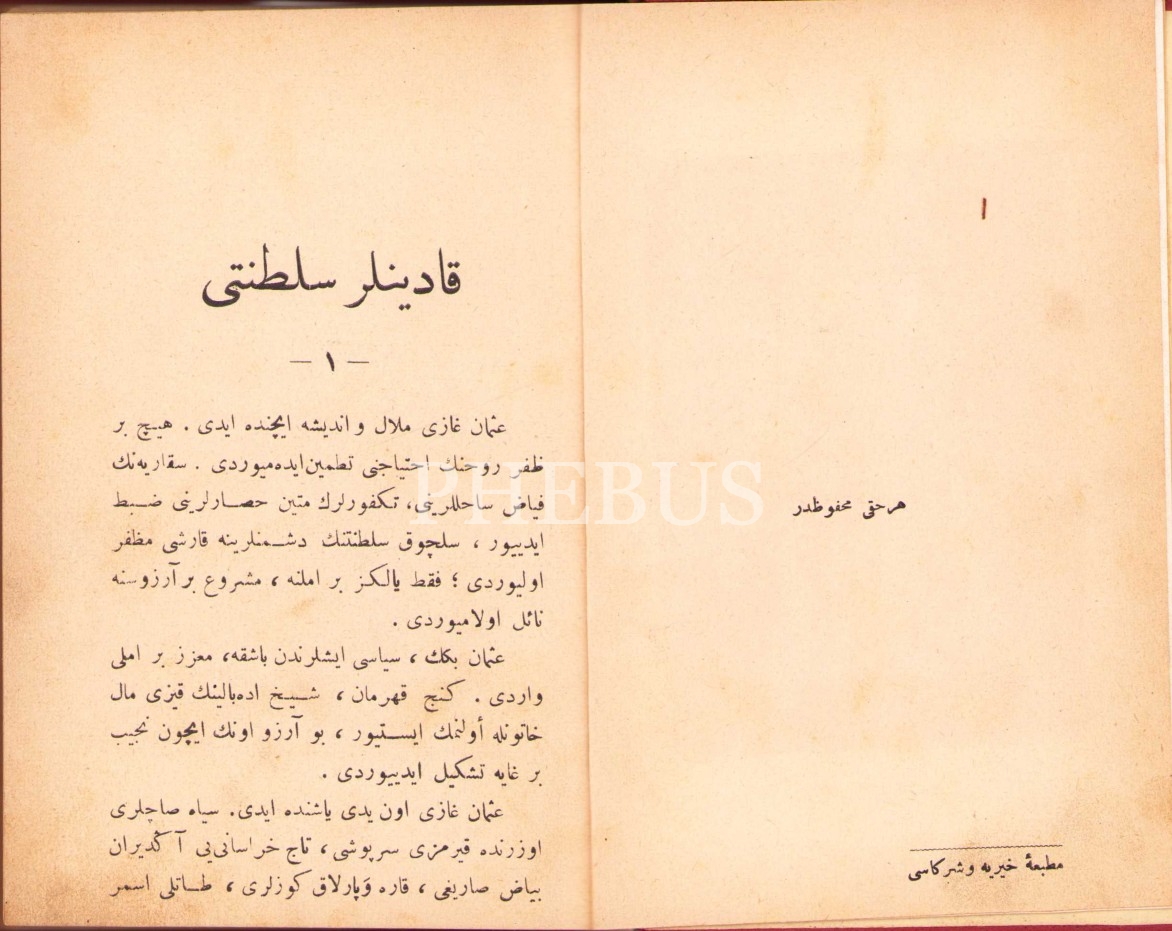 هر حقی محفوظدر
مطبعهٔ خیریه و شرکاسی
قادینلر سلطنتی
— ١ —
عثمان غازی ملال و اندیشه ایچنده ایدی . هیچ بر
ظفر روحنك احتیاجنی تطمین ایده‌میوردی . سقاریه‌نك
فیاض ساحللرینی، تکفورلرك متین حصارلرینی ضبط
ایدییور ، سلچوق سلطنتنك دشمنلرینه قارشی مظفر
اولیوردی ؛ فقط یالکز بر املنه ، مشروع بر آرزوسنه
نائل اولامیوردی .
عثمان بكك ، سیاسی ایشلرندن باشقه، معزز بر املی
واردی . کنج قهرمان ، شیخ اده‌بالینك قیزی مال
خاتونله أولنمك ایستیور ، بو آرزو اونك ایچون نجیب
بر غایه تشکیل ایدییوردی .
عثمان غازی اون یدی یاشنده ایدی. سیاه صاچلری
اوزرنده قیرمزی سرپوشی ، تاج خراسانی‌یی آ کدیران
بیاض صاریغی ، قاره وَپارلاق کوزلری ، طاتلی اسمر
PHEBUS